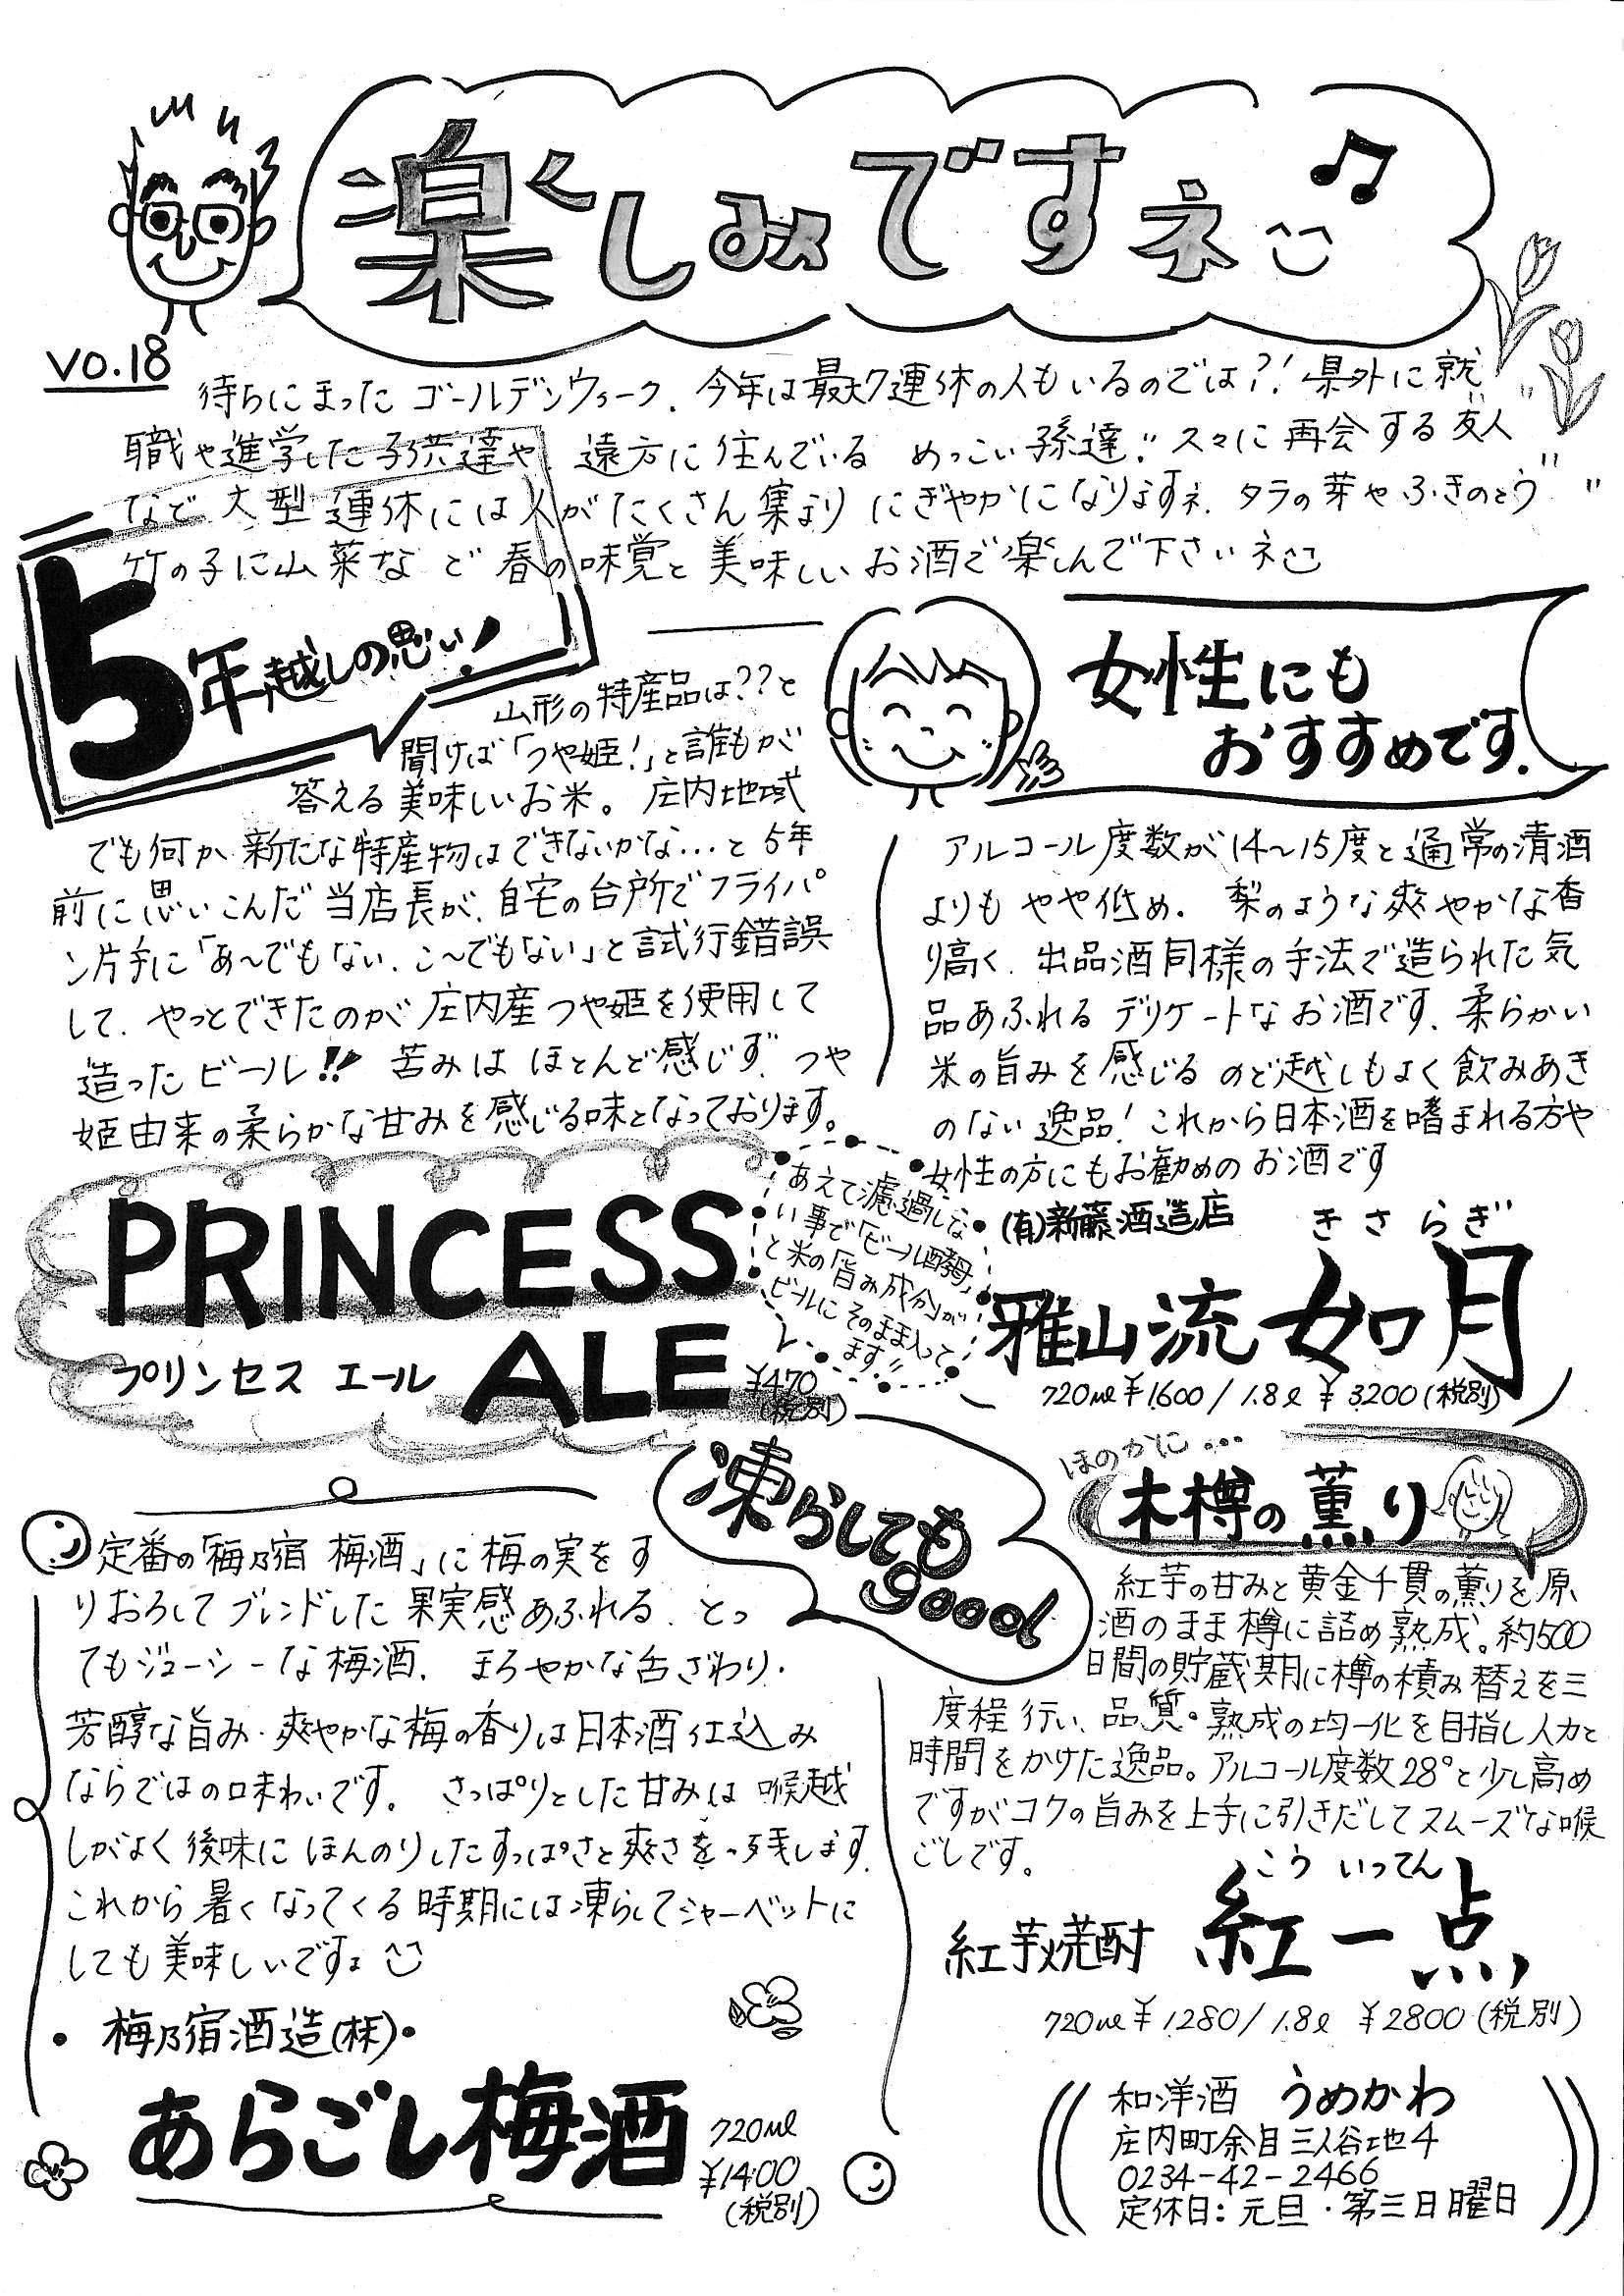 楽しみですネ
VO.18
待ちにまったゴールデンウィーク、今年は最大7連休の人もいるのでは?!県外に就
職や進学した子供達や、遠方に住んでいる めっこい孫達!!久々に再会する友人
など大型連休には人がたくさん集まり にぎやかになりますネ、タラの芽やふきのとう
竹の子に山菜など 春の味覚と美味しいお酒で楽しんで下さいネ
5年越しの思い!
山形の特産品は??と
聞けば「つや姫!」と誰もが
答える美味しいお米。庄内地域
でも何か新たな特産物はできないかな…と5年
前に思いこんだ当店長が、自宅の台所でフライパ
ン片手に「あ〜でもない、こ〜でもない」と試行錯誤
して、やっとできたのが庄内産つや姫を使用して
造ったビール!! 苦みは ほとんど感じず、つや
姫由来の柔らかな甘みを感じる味となっております。
PRINCESS
ALE
プリンセス エール
¥470
(税別)
あえて濾過しな
い事で「ビール酵母」
と米の「旨み成分」が
ビールにそのまま入って
ます!!
女性にも
おすすめです.
アルコール度数が14〜15度と通常の清酒
よりもやや低め. 梨のような爽やかな香
り高く、出品酒同様の手法で造られた気
品あふれる デリケートなお酒です、柔らかい
米の旨みを感じる のど越しもよく飲みあき
のない逸品!これから日本酒を嗜まれる方や
女性の方にもお勧めのお酒です
(有)新藤酒造店
きさらぎ
雅山流 如月
720ml ¥1600 / 1.8l ¥3200(税別)
凍らしても
goood
定番の「梅乃宿 梅酒」に梅の実をす
りおろしてブレンドした果実感あふれる、とっ
てもジューシーな梅酒. まろやかな舌ざわり・
芳醇な旨み・爽やかな梅の香りは日本酒仕込み
ならではの味わいです。さっぱりとした甘みは喉越
しがよく後味に ほんのりしたすっぱさと爽さを残します.
これから暑くなってくる時期には凍らしてシャーベットに
しても美味しいですよ
・梅乃宿酒造(株)・
あらごし梅酒
720ml
¥1400
(税別)
ほのかに…
木樽の薫り
紅芋の甘みと黄金千貫の薫りを原
酒のまま樽に詰め熟成。約500
日間の貯蔵期に樽の積み替えを三
度程行い、品質・熟成の均一化を目指し人力と
時間をかけた逸品。アルコール度数28°と少し高め
ですがコクの旨みを上手に引きだしてスムーズな喉
ごしです。
こう いってん
紅芋焼酎 紅一点
720ml ¥1280 / 1.8l ¥2800(税別)
和洋酒 うめかわ
庄内町余目三人谷地4
0234-42-2466
定休日:元旦・第三日曜日